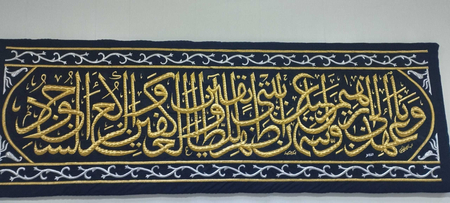 وَعَهِدْنَا إِلَىٰ إِبْرَٰهِيمَ وَإِسْمَٰعِيلَ أَن طَهِّرَا بَيْتِيَ لِلطَّائِفِينَ وَالْعَٰكِفِينَ وَالرُّكَّعِ السُّجُودِ